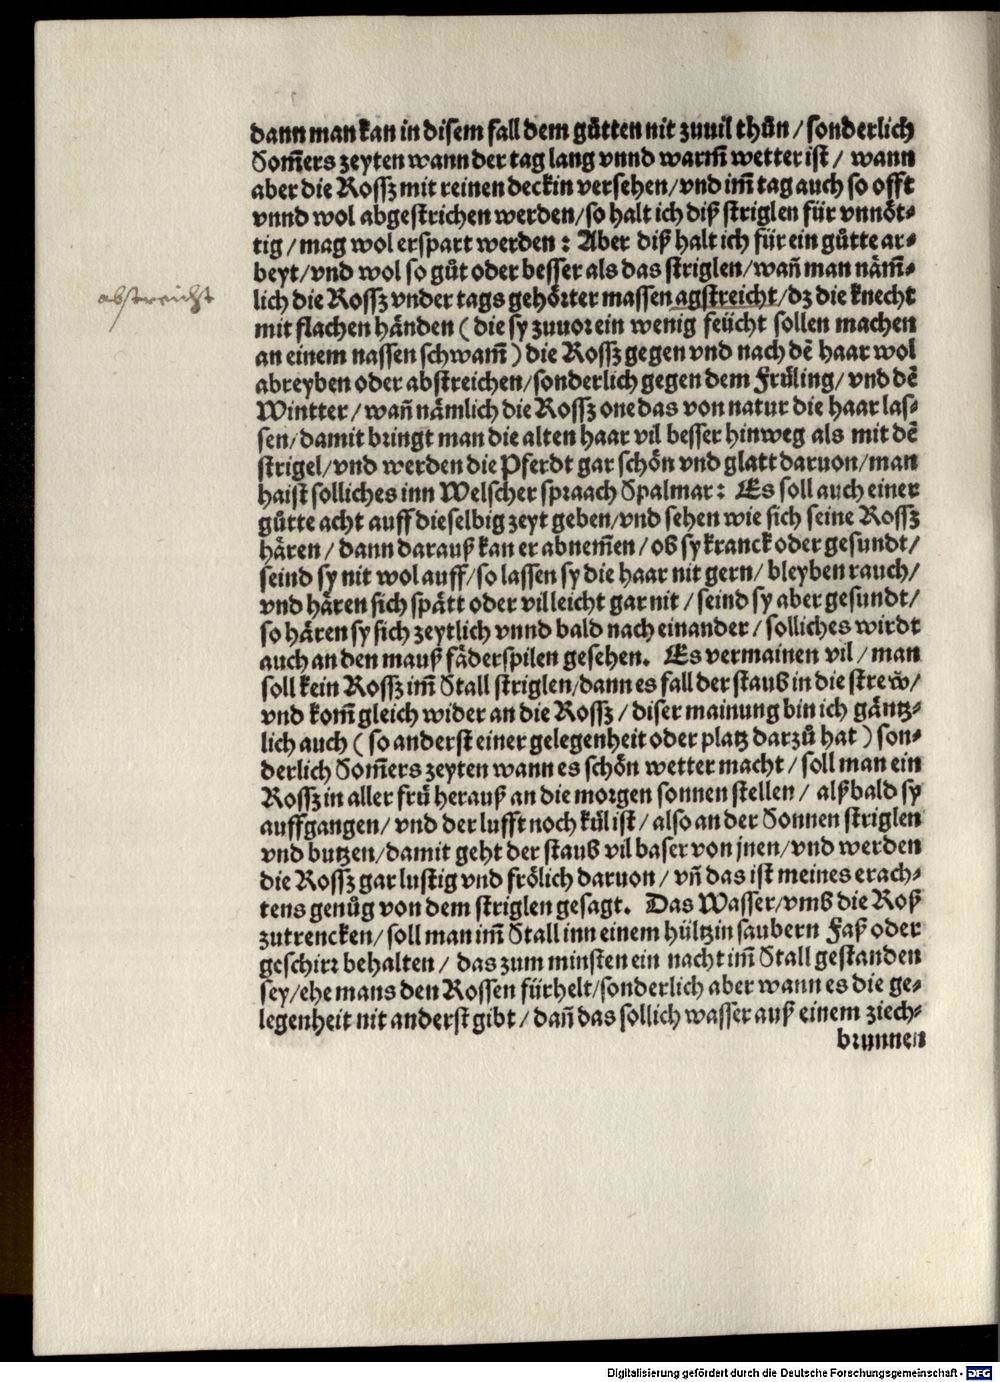 dann man kan in disem fall dem gůtten nit zuuil thůn / sonderlich
Som̃ers zeyten wann der tag lang vnnd warm̃ wetter ist / wann
aber die Rossz mit reinen deckin versehen / vnd im̃ tag auch so offt
vnnd wol abgestrichen werden / so halt ich diß striglen für vnnöt⸗
tig / mag wol erspart werden : Aber diß halt ich für ein gůtte ar⸗
beyt / vnd wol so gůt oder besser als das striglen / wañ man näm̃⸗
lich die Rossz vnder tags gehörter massen agstreicht / dz die knecht
abstreicht
mit flachen händen ( die sy zuuor ein wenig feücht sollen machen
an einem nassen schwam̃ ) die Rossz gegen vnd nach dẽ haar wol
abreyben oder abstreichen / sonderlich gegen dem Früling / vnd dẽ
Wintter / wañ nämlich die Rossz one das von natur die haar las⸗
sen / damit bringt man die alten haar vil besser hinweg als mit dẽ
strigel / vnd werden die Pferdt gar schön vnd glatt daruon / man
haist solliches inn Welscher spraach Spalmar : Es soll auch einer
gůtte acht auff dieselbig zeyt geben / vnd sehen wie sich seine Rossz
hären / dann darauß kan er abnem̃en / ob sy kranck oder gesundt /
seind sy nit wol auff / so lassen sy die haar nit gern / bleyben rauch /
vnd hären sich spätt oder villeicht gar nit / seind sy aber gesundt /
so hären sy sich zeytlich vnnd bald nach einander / solliches wirdt
auch an den mauß fäderspilen gesehen. Es vermainen vil / man
soll kein Rossz im̃ Stall striglen / dann es fall der staub in die strew̃ /
vnd kom̃ gleich wider an die Rossz / diser mainung bin ich gäntz⸗
lich auch ( so anderst einer gelegenheit oder platz darzů hat ) son⸗
derlich Som̃ers zeyten wann es schön wetter macht / soll man ein
Rossz in aller frü herauß an die morgen sonnen stellen / alßbald sy
auffgangen / vnd der lufft noch kül ist / also an der Sonnen striglen
vnd butzen / damit geht der staub vil baser von jnen / vnd werden
die Rossz gar lustig vnd frölich daruon / vñ das ist meines erach⸗
tens genůg von dem striglen gesagt. Das Wasser / vmb die Roß
zutrencken / soll man im̃ Stall inn einem hültzin saubern Faß oder
geschirr behalten / das zum minsten ein nacht im̃ Stall gestanden
sey / ehe mans den Rossen fürhelt / sonderlich aber wann es die ge⸗
legenheit nit anderst gibt / dañ das sollich wasser auß einem ziech⸗
brunnen
Digitalisierung gefördert durch die Deutsche Forschungsgemeinschaft - DFG